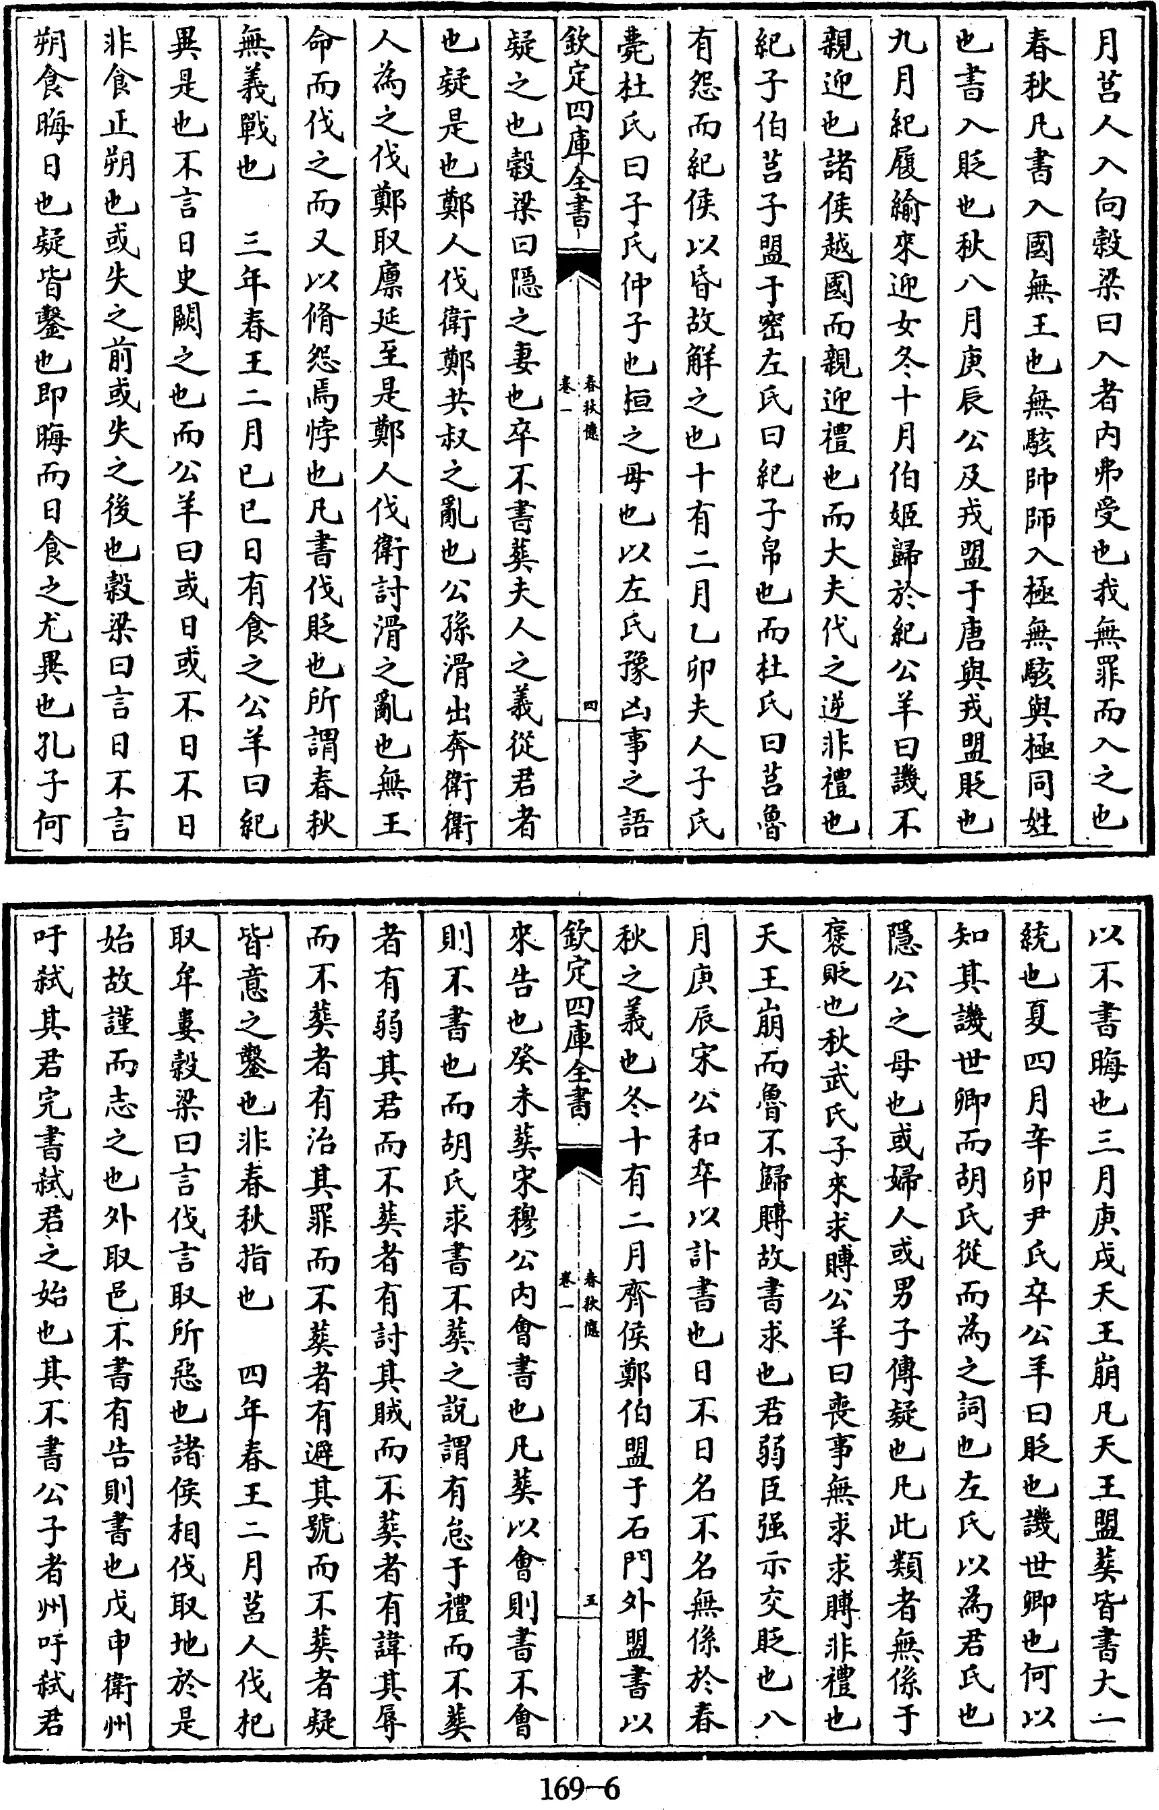 月莒人入向穀梁曰入者內弗受也我無罪而入之也
春秋凡書入國無王也無駭帥師入極無駭與極同姓
也書入貶也秋八月庚辰公及戎盟于唐與戎盟貶也
九月紀履緰來迎女冬十月伯姬歸於紀公羊曰譏不
親迎也諸侯越國而親迎禮也而大夫代之逆非禮也
紀子伯莒子盟于密左氏曰紀子帛也而杜氏曰莒魯
有怨而紀侯以昏故解之也十有二月乙卯夫人子氏
薨杜氏曰子氏仲子也桓之母也以左氏豫凶事之語
欽定四庫全書
春秋億
卷一
四
疑之也穀梁曰隱之妻也卒不書葬夫人之義從君者
也疑是也鄭人伐衛鄭共叔之亂也公孫滑出奔衛衛
人為之伐鄭取廪延至是鄭人伐衛討滑之亂也無王
命而伐之而又以脩怨焉悖也凡書伐貶也所謂春秋
無義戰也 三年春王二月已巳日有食之公羊曰紀
異是也不言日史闕之也而公羊曰或日或不日不日
非食正朔也或失之前或失之後也穀梁曰言日不言
朔食晦日也疑皆鑿也即晦而日食之尤異也孔子何
以不書晦也三月庚戌天王崩凡天王盟葬皆書大一
統也夏四月辛卯尹氏卒公羊曰貶也譏世卿也何以
知其譏世卿而胡氏從而為之詞也左氏以為君氏也
隱公之母也或婦人或男子傳疑也凡此類者無係于
褒貶也秋武氏子來求賻公羊曰喪事無求求賻非禮也
天王崩而魯不歸賻故書求也君弱臣强示交貶也八
月庚辰宋公和卒以訃書也日不日名不名無係於春
秋之義也冬十有二月齊侯鄭伯盟于石門外盟書以
欽定四庫全書
春秋億
卷一
五
來告也癸未葬宋穆公內會書也凡葬以會則書不會
則不書也而胡氏求書不葬之說謂有怠于禮而不葬
者有弱其君而不葬者有討其賊而不葬者有諱其辱
而不葬者有治其罪而不葬者有避其號而不葬者疑
皆意之鑿也非春秋指也 四年春王二月莒人伐杞
取牟婁穀梁曰言伐言取所惡也諸侯相伐取地於是
始故謹而志之也外取邑不書有告則書也戊申衛州
吁弒其君完書弒君之始也其不書公子者州吁弒君
169-6